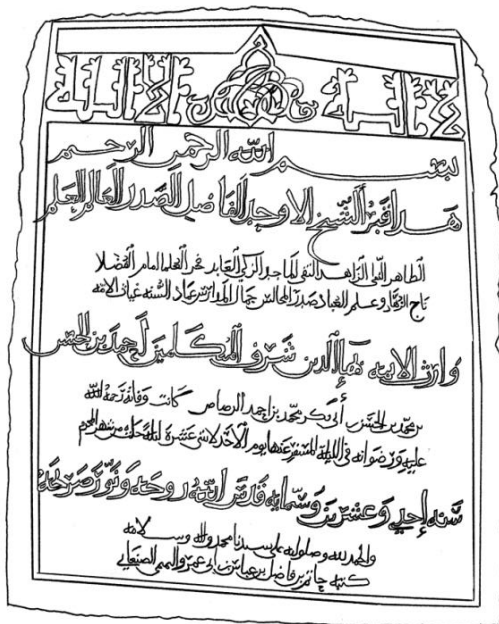 لا اله الا الله
بسم الله الرحمن الرحيم
هذا قبر الشيخ الاوحد الفاضل الصدر العالم العلم
الطاهر التقي الزاهد النقي الماجد الزكي العابد فخر العلما امام الفضلا
تاج الزهاد وعلم العباد صدر المجالس جمال المدارس عماد السنه غياث الامه
وارث الايمه بهاء الدين شرف المتكلمين احمد بن الحسن
بن محمد بن الحسن بن أبي بكر محمد بن احمد الرصاص كانت وفاته رحمة الله
عليه ورضوانه في الليلة المسفر عنها يوم الاحد لاثنى عشرة ليلة خلت من شهر المحرم
سنه إحدى وعشرين وستمايه قدس الله روحه ونور ضريحه
والحمد لله وصلواته على سيدنا محمد واله وسلامه
كتبه حاتم بن فاضل بن عباس بن ابي عمرو الصنعاني